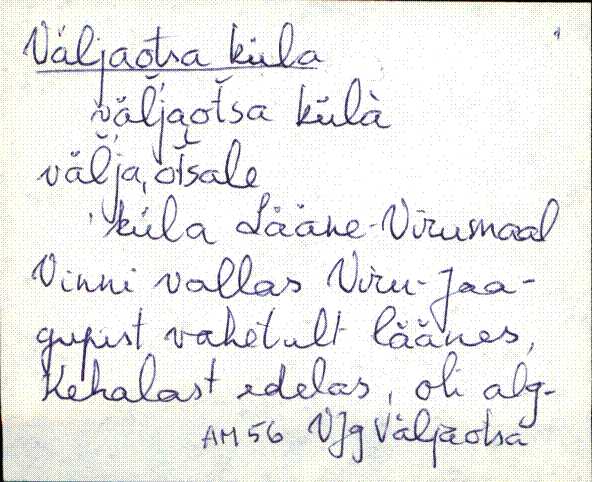 Väljaotsa küla
väljaotsa külà
välja, otsale
küla Lääne-Virumaal
Vinni vallas Viru-Jaa-
gupist vahetult läänes,
Kehalast edelas, oli alg-
AM 56 VJg Väljaotsa